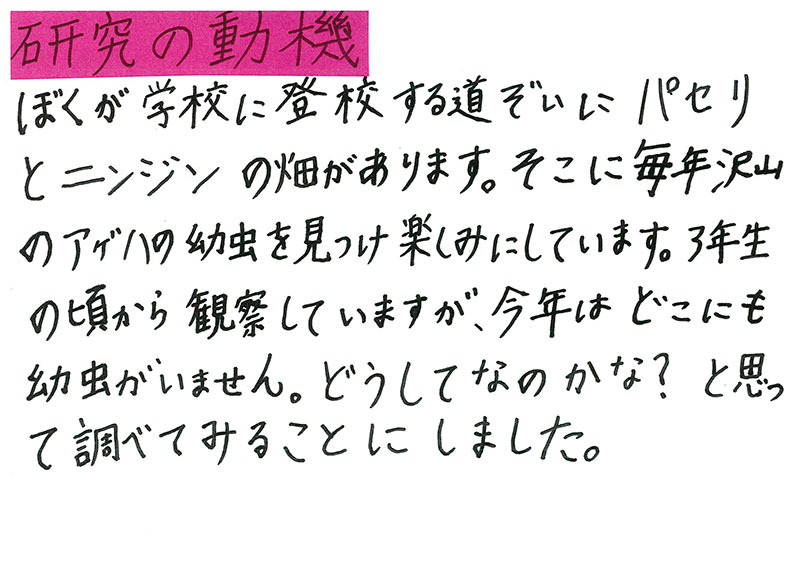 研究の動機
ぼくが学校に登校する道ぞいにパセリ
とニンジンの畑があります。そこに毎年、沢山
のアゲハの幼虫を見つけ楽しみにしています。3年生
の頃から観察していますが、今年はどこにも
幼虫がいません。どうしてなのかな?と思っ
て調べてみることにしました。